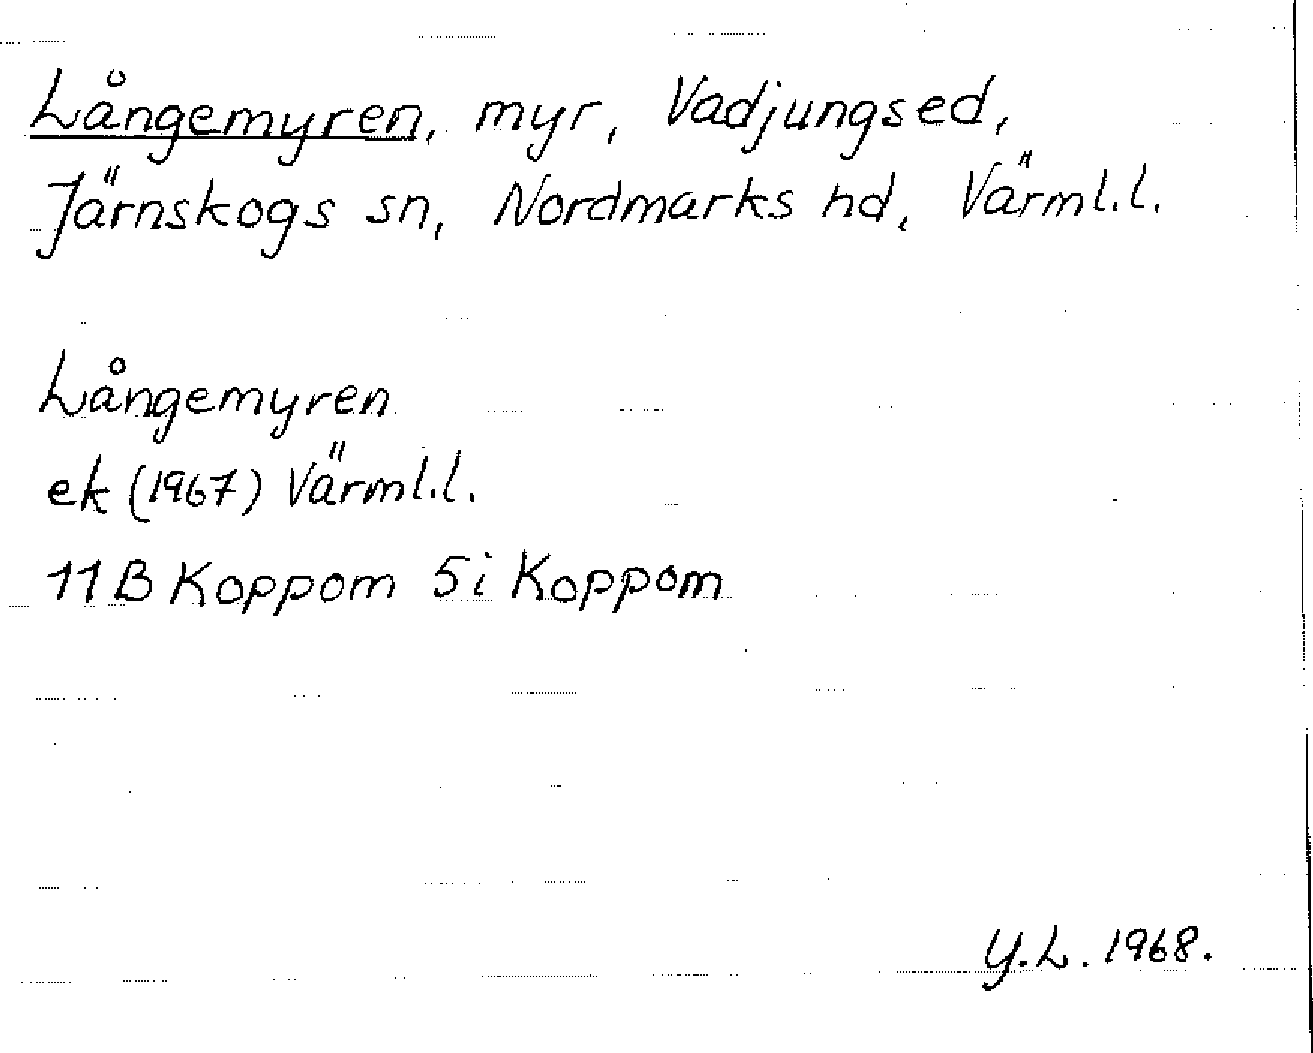 Långemyren, myr, Vadjungsed,
Järnskogs sn, Nordmarks hd, Värml.l.
Långemyren
ek (1967) Värml.l.
11B Koppom 5i Koppom
Y.L. 1968.